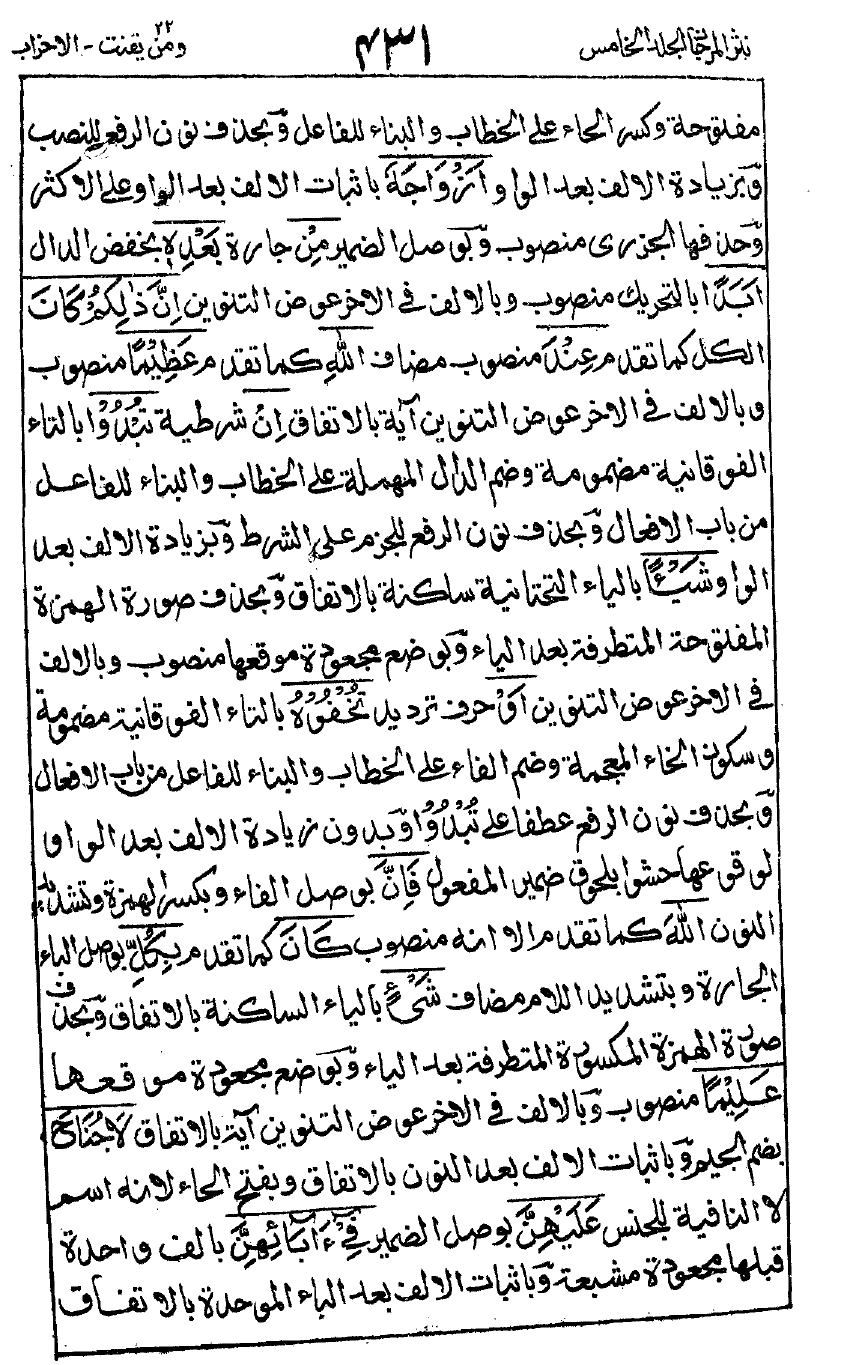 نثر المرجان المجلد الخامس
٤٣١
ومن يقنت ٢٢ - الاحزاب
مفتوحة وكسر الحاء على الخطاب والبناء للفاعل وبحذف نون الرفع للنصب
وبزيادة الالف بعد الواو أَزْوَاجَهُ باثبات الالف بعد الواو على الاكثر
وحذفها الجزرى منصوب وبوصل الضمير مِنْ جارة بَعْدِهٖ بخفض الدال
اَبَدًا بالتحريك منصوب وبالالف فى الاخر عوض التنوين اِنَّ ذٰلِكُمْ كَانَ
الكل كما تقدم عِنْدَ منصوب مضاف اللهِ كما تقدم عَظِيْمًا منصوب
وبالالف فى الاخر عوض التنوين آية بالاتفاق اِنْ شرطية تُبْدُوْا بالتاء
الفوقانية مضمومة وضم الدال المهملة على الخطاب والبناء للفاعل
من باب الافعال وبحذف نون الرفع للجزم على الشرط وبزيادة الالف بعد
الواو شَيْـًٔا بالياء التحتانية ساكنة بالاتفاق وبحذف صورة الهمزة
المفتوحة المتطرفة بعد الياء وبوضع مجعودة موقعها منصوب وبالالف
فى الاخر عوض التنوين اَوْ حرف ترديد تُخْفُوْهُ بالتاء الفوقانية مضمومة
وسكون الخاء المعجمة وضم الفاء على الخطاب والبناء للفاعل من باب الافعال
وبحذف نون الرفع عطفا على تُبْدُوْا وبدون زيادة الالف بعد الواو
لوقوعها حشوا بلحوق ضمير المفعول فَاِنَّ بوصل الفاء وبكسر الهمزة وتشديد
النون اللهَ كما تقدم الا انه منصوب كَانَ كما تقدم بِكُلِّ بوصل الباء
الجارة وبتشديد اللام مضاف شَىْءٍ بالياء الساكنة بالاتفاق وبحذف
صورة الهمزة المكسورة المتطرفة بعد الياء وبوضع مجعودة موقعها
عَلِيْمًا منصوب وبالالف فى الاخر عوض التنوين آية بالاتفاق لَاجُنَاحَ
بضم الجيم وباثبات الالف بعد النون بالاتفاق وبفتح الحاء لانه اسم
لا النافية للجنس عَلَيْهِنَّ بوصل الضمير فِىْٓ ءَابَآئِهِنَّ بالف واحدة
قبلها مجعودة مشبعة وباثبات الالف بعد الباء الموحدة بالاتفاق